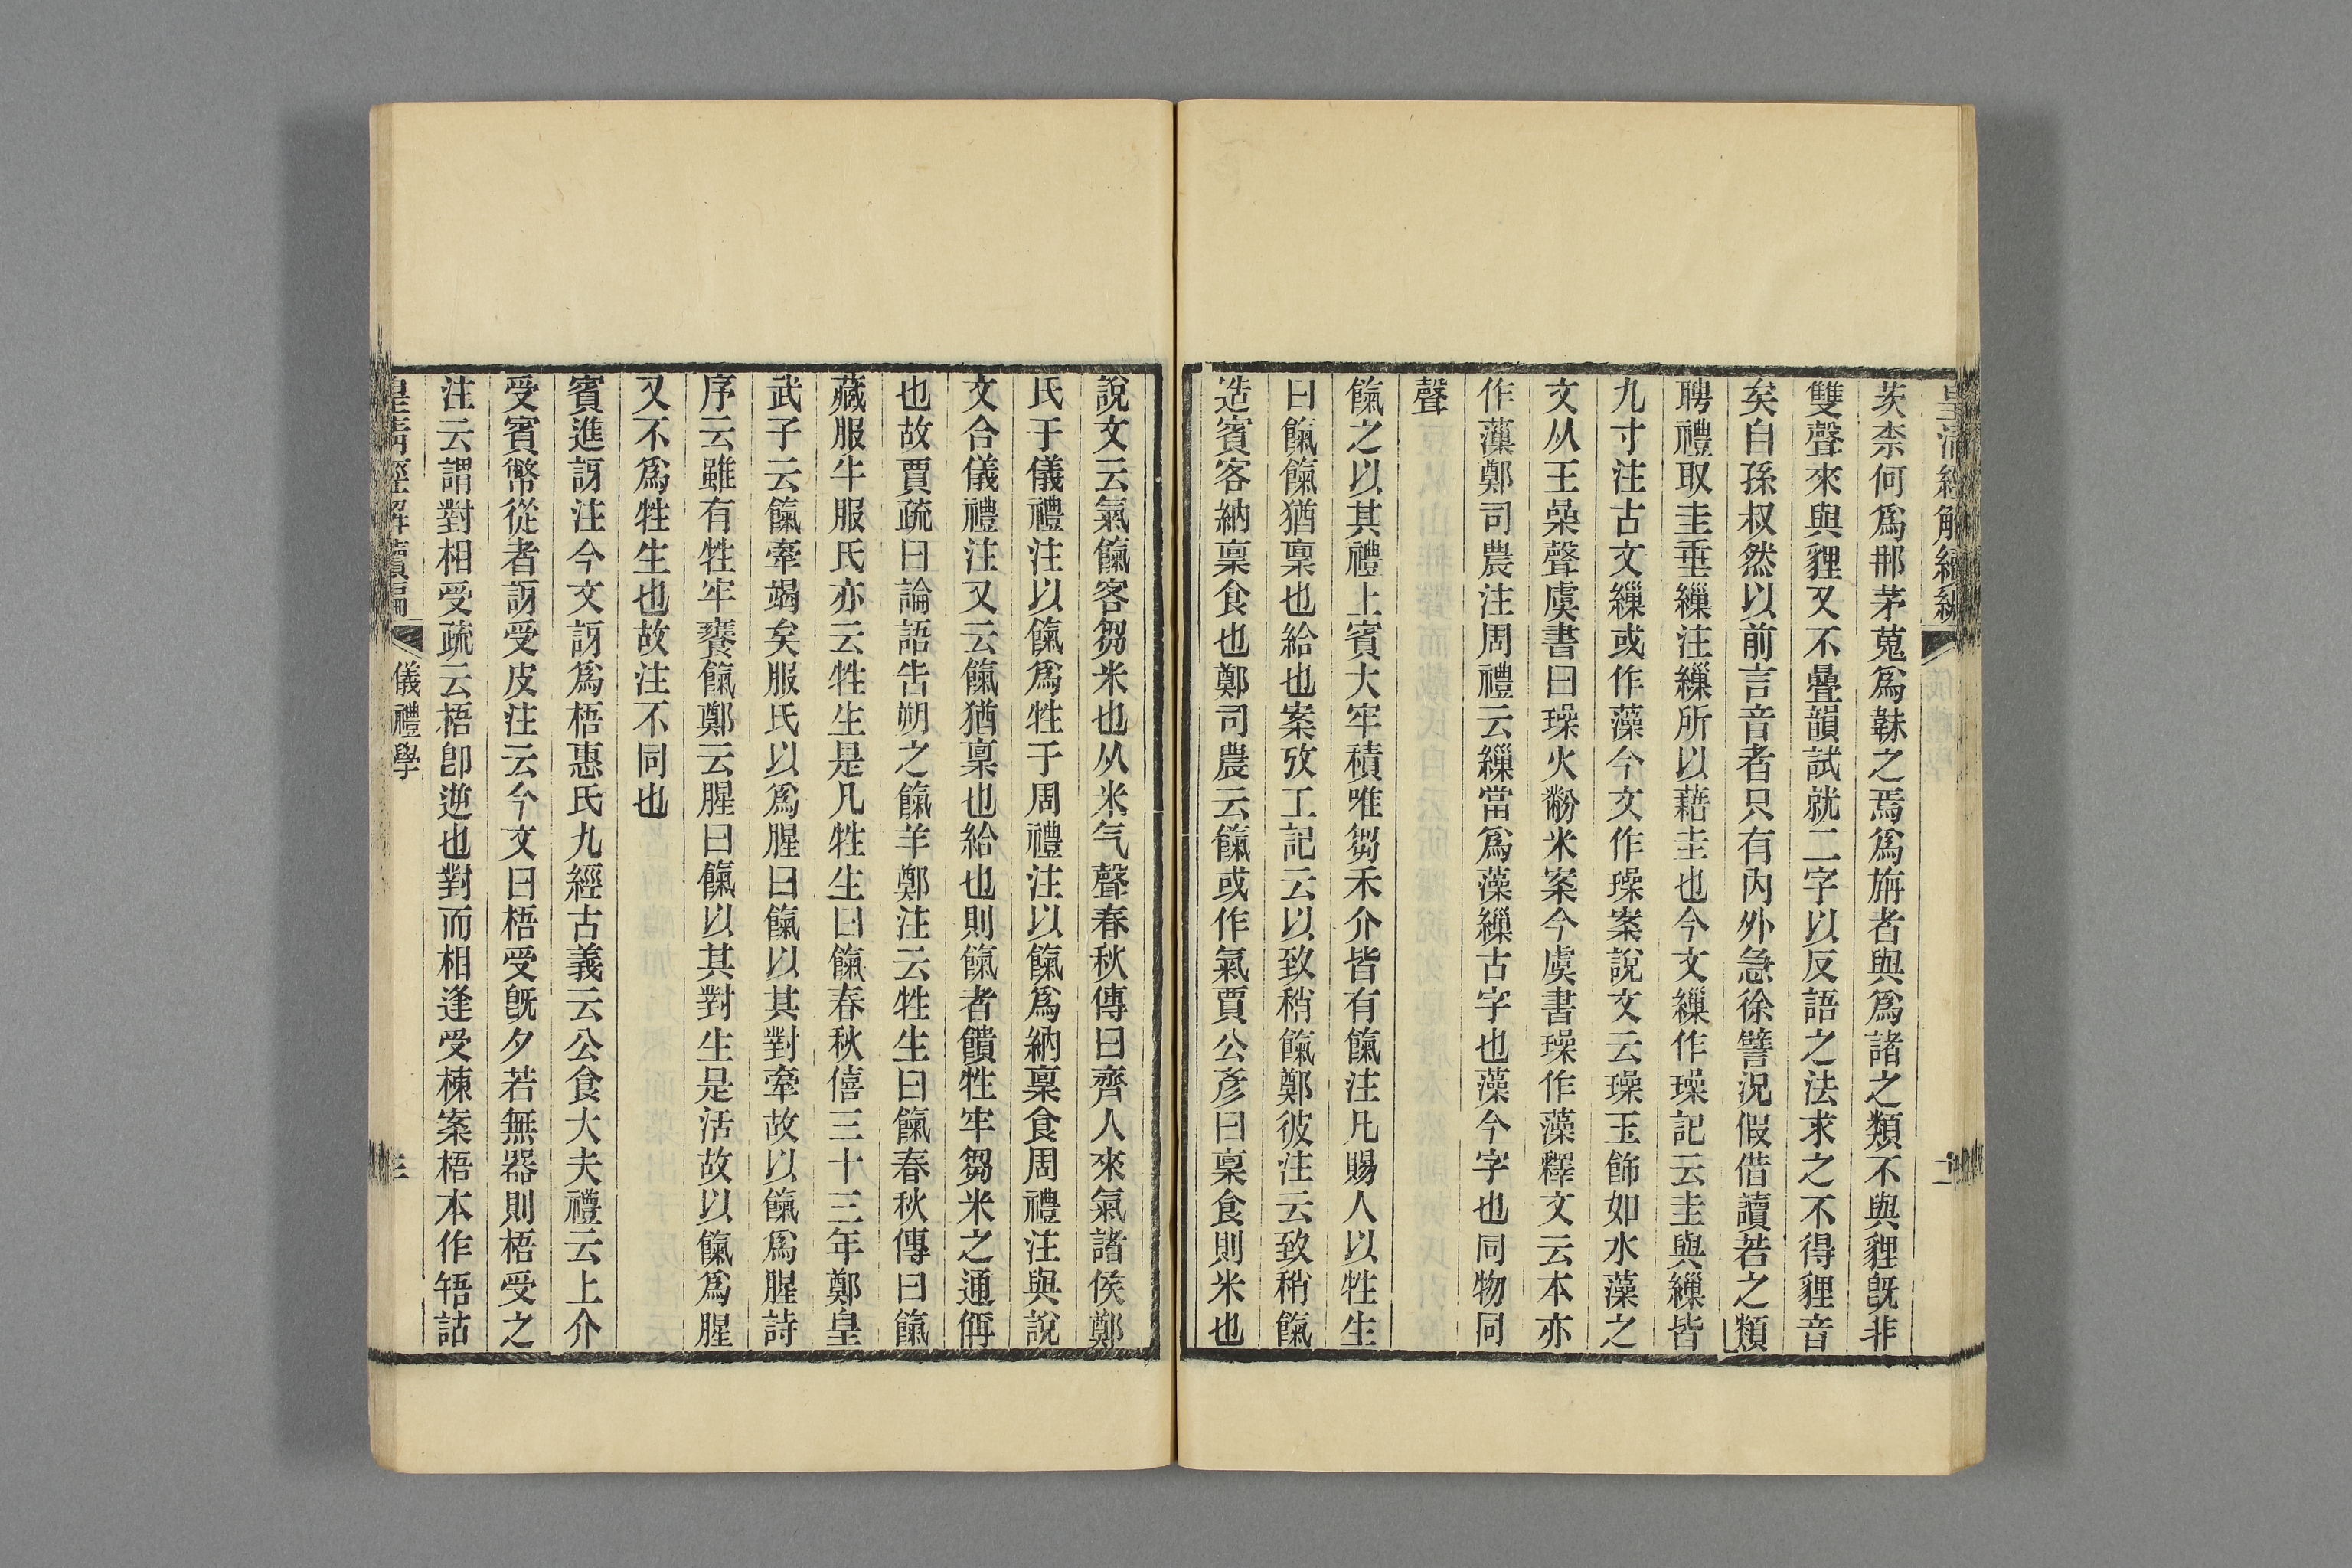 皇清經解續編
茨柰何爲䢴茅蒐爲韎之焉爲旃者與爲諸之類不與貍旣非
雙聲來與貍又不疊韻試就二字以反語之法求之不得貍音
矣自孫叔然以前言音者只有內外急徐譬況假借讀若之類
聘禮取圭垂繅注繅所以藉圭也今文繅作璪記云圭與繅皆
九寸注古文繅或作藻今文作璪案說文云璪玉飾如水藻之
文从王喿聲虞書曰璪火黺米案今虞書璪作藻釋文云本亦
作薻鄭司農注周禮云繅當爲藻繅古字也藻今字也同物同
聲
餼之以其禮上賓大牢積唯芻禾介皆有餼注凡賜人以牲生
曰餼餼猶稟也給也案攷工記云以致稍餼鄭彼注云致稍餼
造賓客納稟食也鄭司農云餼或作氣賈公彥曰稟食則米也
說文云氣餼客芻米也从米气聲春秋傳曰齊人來氣諸侯鄭
氏于儀禮注以餼爲牲于周禮注以餼爲納稟食周禮注與說
文合儀禮注又云餼猶稟也給也則餼者饋牲牢芻米之通偁
也故賈疏曰論語告朔之餼羊鄭注云牲生曰餼春秋傳曰餼
藏服牛服氏亦云牲生是凡牲生曰餼春秋僖三十三年鄭皇
武子云餼牽竭矣服氏以爲腥曰餼以其對牽故以餼爲腥詩
序云雖有牲牢饔餼鄭云腥曰餼以其對生是活故以餼爲腥
又不爲牲生也故注不同也
賓進訝注今文訝爲梧惠氏九經古義云公食大夫禮云上介
受賓幣從者訝受皮注云今文曰梧受旣夕若無器則梧受之
注云謂對相受疏云梧卽逆也對而相逢受棟案梧本作啎詁
皇淸經解續編
儀禮學